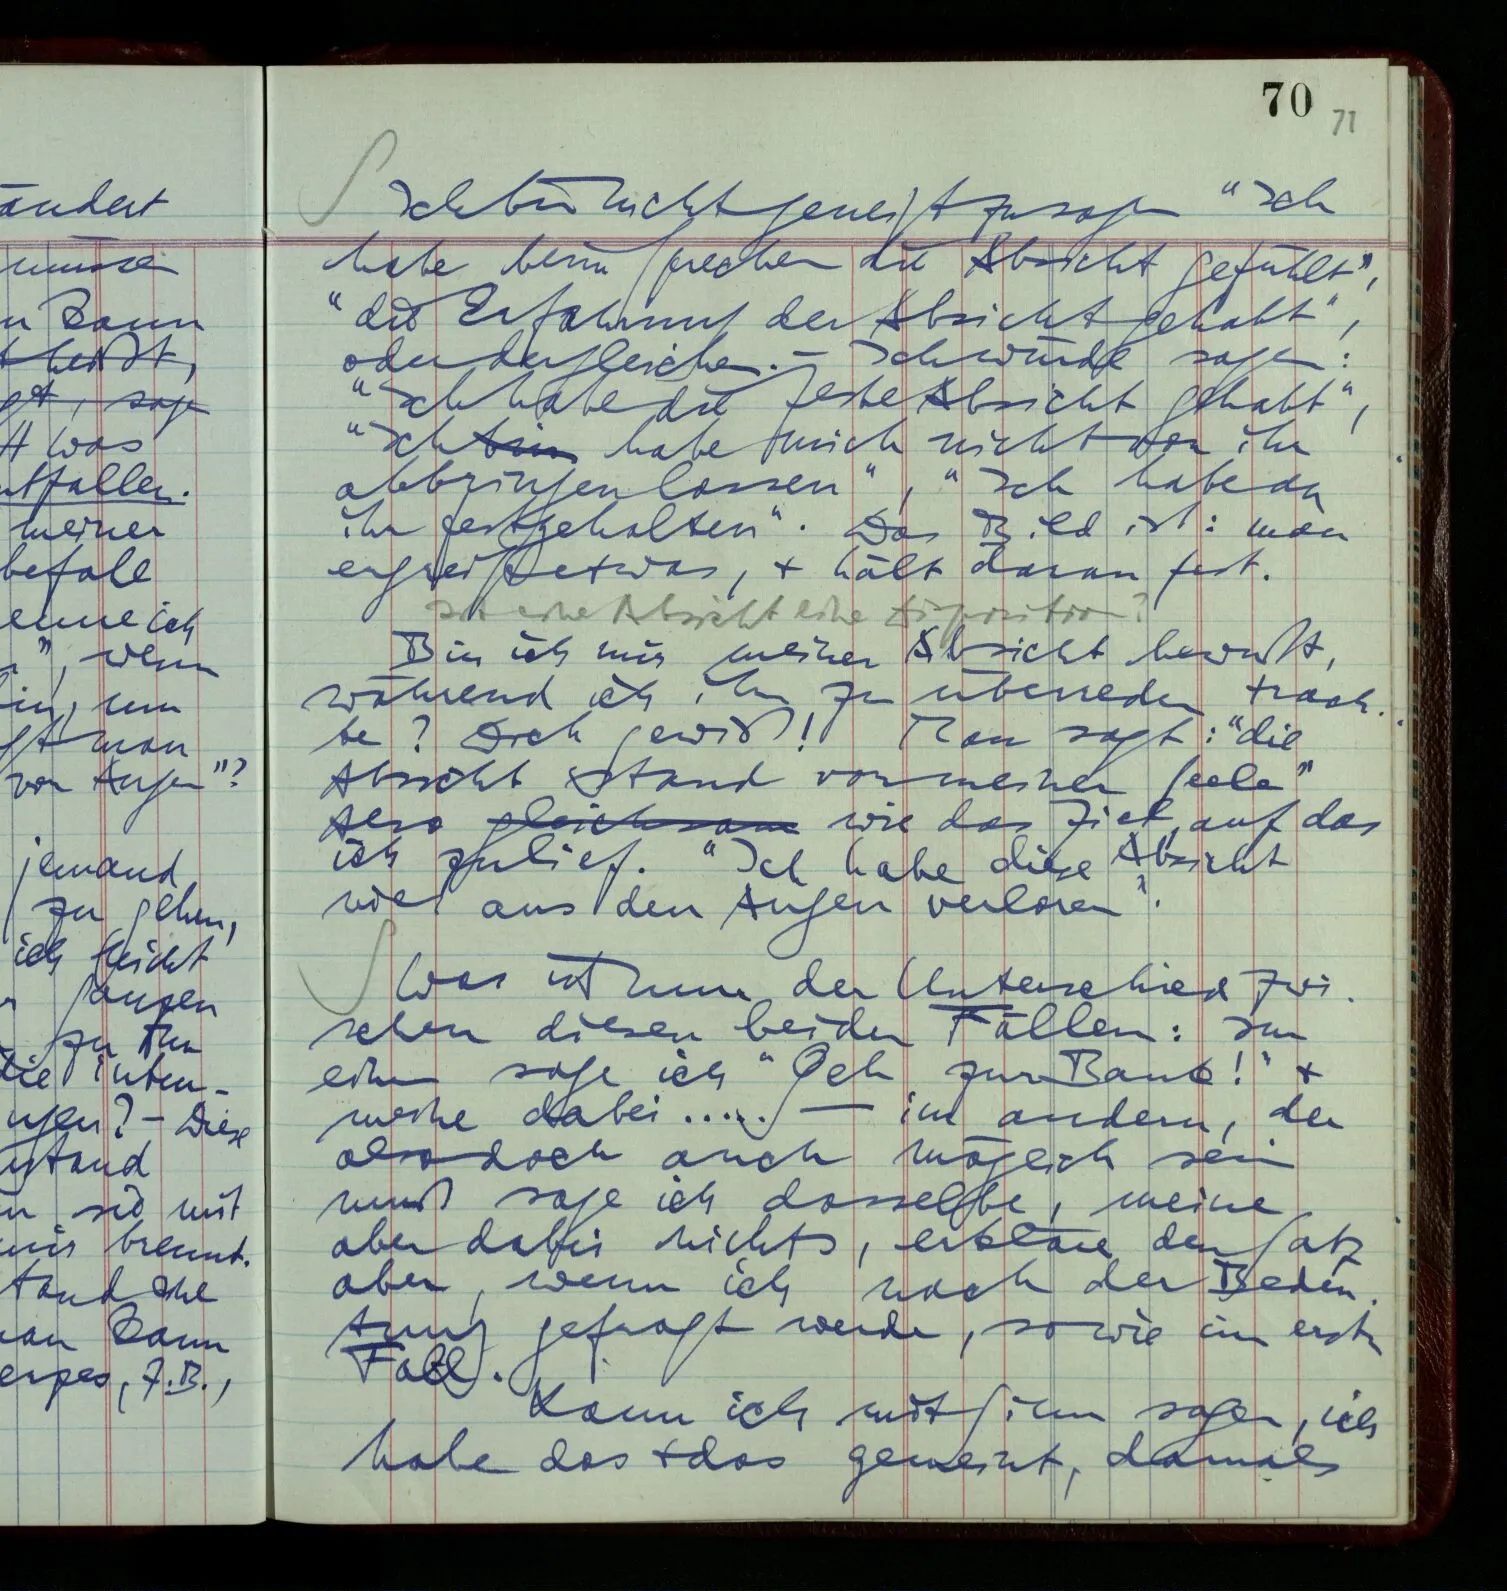 ändert
müssen
n kann
t heißt,
get, sage
was
ntfallen.
meiner
befahl
enne ich
", wenn
in, um
gt man
vor Augen"?
jemand
zu gehen,
ich leicht
ganzen
zu thun
die inten-
ngen? – Diese
ustand
sie mit
mir brennt.
tand
man kann
z.B.,
70
71
Ich bin nicht geneigt zu sagen "Ich
habe beim Sprechen die Absicht gefühlt",
"die Erfahrung der Absicht gehabt",
oder dergleichen. – Ich würde sagen:
"Ich habe die feste Absicht gehabt",
"Ich bin habe mich nicht von ihr
abbringen lassen", "Ich habe an
ihr festgehalten". Das Bild ist: man
ergreift etwas, + hält daran fest.
Ist eine Absicht eine Disposition?
Bin ich mir meiner Absicht bewußt,
während ich ihn zu überreden trach-
te? Doch gewiß! Man sagt: "die
Absicht stand vor meiner Seele"
also gleichsam wie das Ziel, auf das
ich zulief. "Ich habe diese Absicht
nie aus den Augen verloren".
Was ist nun der Unterschied zwi-
schen diesen beiden Fällen: Im
einen sage ich "Geh zur Bank!" +
meine dabei ..... — im andern, der
also doch auch möglich sein
muß sage ich dasselbe, meine
aber dabei nichts, erkläre den Satz
aber, wenn ich nach der Bedeu-
tung gefragt werde, so wie im ersten
Fall.
Kann ich mit Sinn sagen, ich
habe das + das gemeint, damals